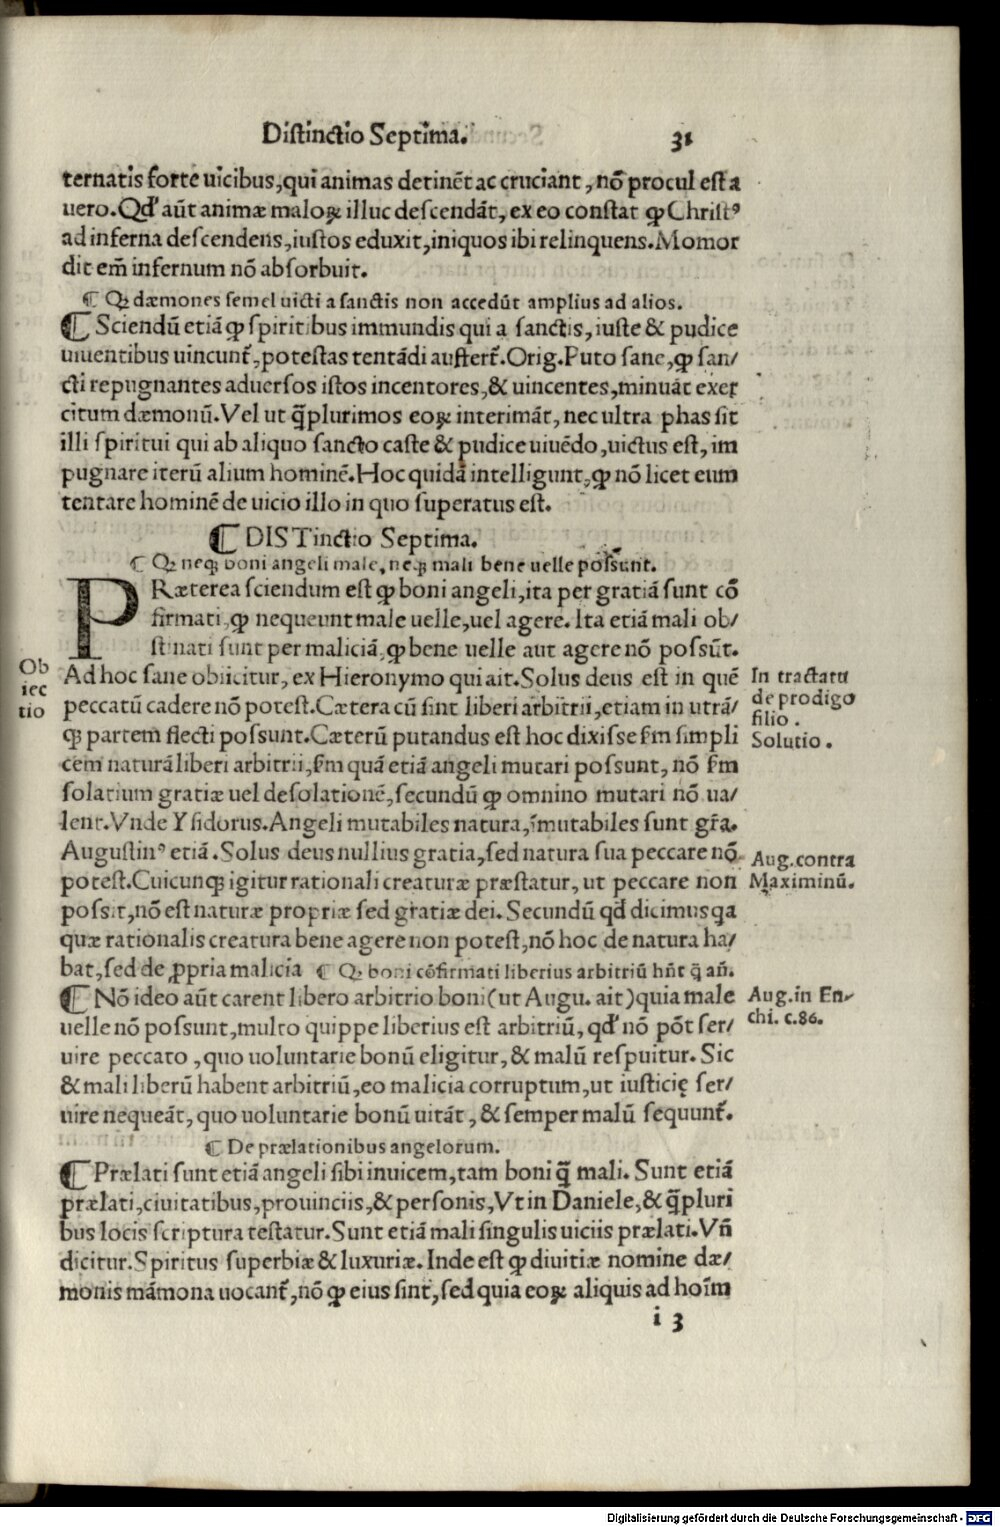 Distinctio Septima. 31
ternatis forte uicibus, qui animas detinẽt ac cruciant, nõ procul est a
uero. Qđ aũt animæ maloꝝ illuc descendãt, ex eo constat ꝙ Christꝰ
ad inferna descendens, iustos eduxit, iniquos ibi relinquens. Momor
dit em̃ infernum nõ absorbuit.
¶ Qꝫ dæmones semel uicti a sanctis non accedũt amplius ad alios.
¶ Sciendũ etiã ꝙ spiritibus immundis qui a sanctis, iuste & pudice
uiuentibus uincunt᷑, potestas tentãdi auffert᷑. Orig. Puto sane, ꝙ san/
cti repugnantes aduersos istos incentores, & uincentes, minuãt exer
citum dæmonũ. Vel ut q̃plurimos eoꝝ interimãt, nec ultra phas sit
illi spiritui qui ab aliquo sancto caste & pudice uiuẽdo, uictus est, im
pugnare iterũ alium hominẽ. Hoc quidã intelligunt, ꝙ nõ licet eum
tentare hominẽ de uicio illo in quo superatus est.
¶ DISTinctio Septima.
¶ Qꝫ neqꝫ boni angeli male, neqꝫ mali bene uelle possunt.
PRæterea sciendum est ꝙ boni angeli, ita per gratiã sunt cõ
firmati, ꝙ nequeunt male uelle, uel agere. Ita etiã mali ob/
stinati sunt per maliciã, ꝙ bene uelle aut agere nõ possũt.
Ob
iec
tio
Ad hoc sane obiicitur, ex Hieronymo qui ait. Solus deus est in quẽ
peccatũ cadere nõ potest. Cætera cũ sint liberi arbitrii, etiam in utrã/
qꝫ partem flecti possunt. Cæterũ putandus est hoc dixisse ẜm simpli
cem naturã liberi arbitrii, ẜm quã etiã angeli mutari possunt, nõ ẜm
solatium gratiæ uel desolationẽ, secundũ ꝙ omnino mutari nõ ua/
lent. Vnde Ysidorus. Angeli mutabiles natura, ĩmutabiles sunt gr̃a.
Augustinꝰ etiã. Solus deus nullius gratia, sed natura sua peccare nõ
potest. Cuicunqꝫ igitur rationali creaturæ præstatur, ut peccare non
possit, nõ est naturæ propriæ sed gratiæ dei. Secundũ qđ dicimus qa
quæ rationalis creatura bene agere non potest, nõ hoc de natura ha/
bat, sed de ꝓpria malicia ¶ Qꝫ boni cõfirmati liberius arbitriũ hñt q̃ añ.
¶ Nõ ideo aũt carent libero arbitrio boni (ut Augu. ait) quia male
uelle nõ possunt, multo quippe liberius est arbitriũ, qđ nõ põt ser/
uire peccato, quo uoluntarie bonũ eligitur, & malũ respuitur. Sic
& mali liberũ habent arbitriũ, eo malicia corruptum, ut iusticię ser/
uire nequeãt, quo uoluntarie bonũ uitãt, & semper malũ sequunt᷑.
¶ De prælationibus angelorum.
¶ Prælati sunt etiã angeli sibi inuicem, tam boni q̃ mali. Sunt etiã
prælati, ciuitatibus, prouinciis, & personis, Vt in Daniele, & q̃pluri
bus locis scriptura testatur. Sunt etiã mali singulis uiciis prælati. Vñ
dicitur. Spiritus superbiæ & luxuriæ. Inde est ꝙ diuitiæ nomine dæ/
monis mãmona uocant᷑, nõ ꝙ eius sint, sed quia eoꝝ aliquis ad hoĩm
i 3
In tractatu
de prodigo
filio.
Solutio.
Aug. contra
Maximinũ.
Aug. in En-
chi. c. 86.
Digitalisierung gefördert durch die Deutsche Forschungsgemeinschaft - DFG